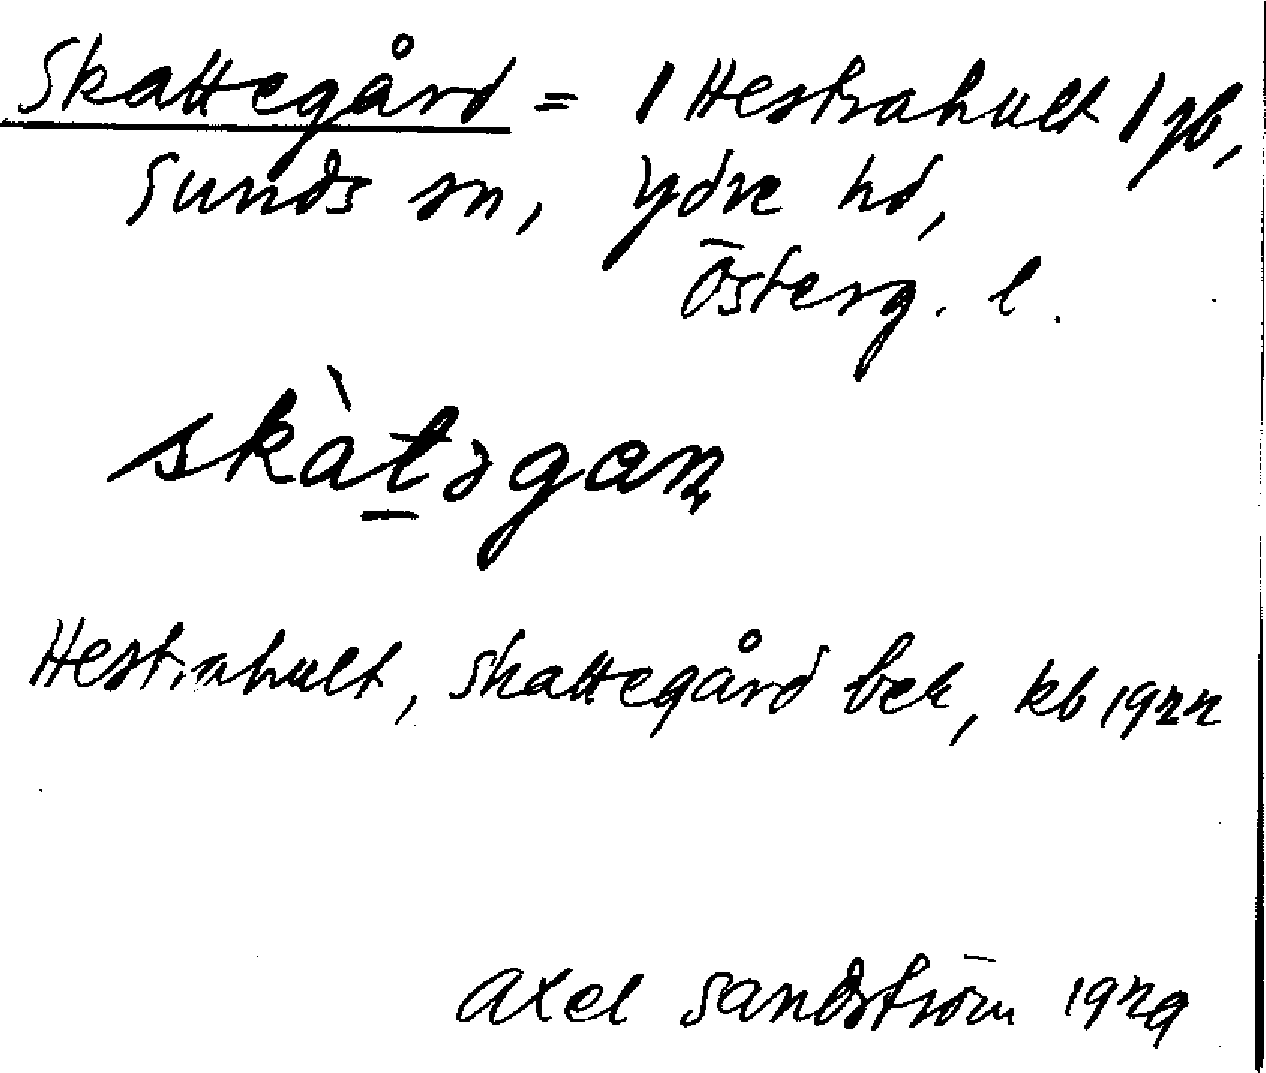 Skattegård = 1 Hestrahult 1 gb,
Sunds sn, Ydre hd,
Österg. l.
skàt̠əgaṇ
Hestrahult, skattegård bek, kb 1922
Axel Sandström 1929